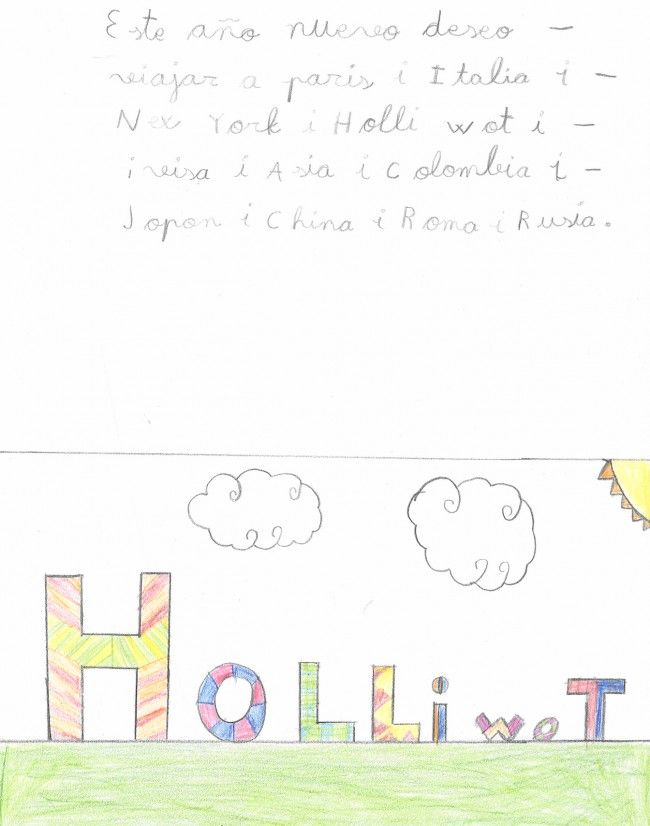 Este año nuevo deseo –
viajar a paris i Italia i –
Nex York i Holli wot i –
ivisa i Asia i Colombia i –
Jopon i China i Roma i Rusia.
HoLLiwoT